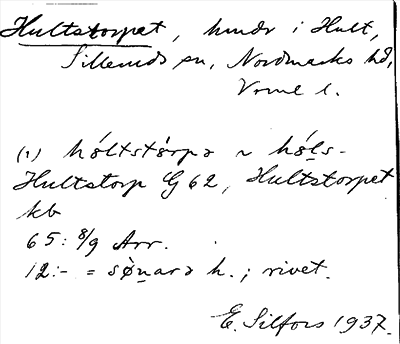 Hultstorpet, hmdr i Hult,
Silleruds sn, Nordmarks hd,
Vrml l.
(1) hóltstòrpə ~ hóls-
Hultstorp G 62, Hultstorpet
kb
65: 8/9 Arr.
12:- = sønarə h.; rivet.
E. Silfors 1937.